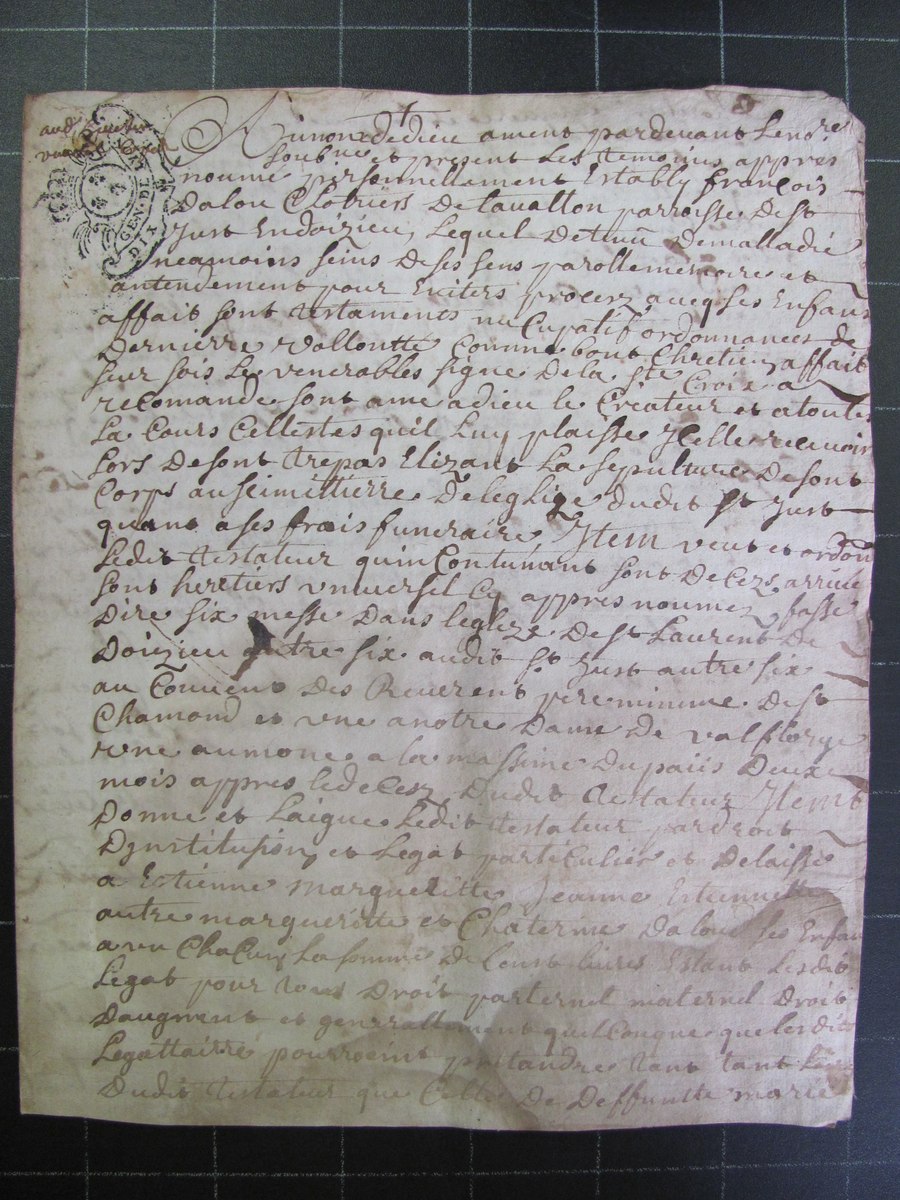 Au nom de dieu ament pardevant Le nore
soubne et present Les temoins appres
noumé personnellement Establÿ françois
Dalou Clotriers De lavallon parroisse De st
Just En doizieu, Lequel Detenu De malladie
neamoins seins De ses sens parolle memoire et
antendement pour Eviters procerz aveq ses Enfans
affait sont testaments nuCupatif ordonnances de
Dernierre vollontte Comme bont Chretien affait
sur sois Le venerables signe De la ste Croix a
recomande sont ame a dieu le Createur et a toute
La Cours Cellestes quil Luy plaisse Jcelle recevoir
Lors De sont trepas Elizant La sepulture De sont
Corps au seimittierre De leglize dudit st Just
quant a ses frais funeraire Jtem veut et ordon
Ledit testateur quincontinant sont DeCezs arrive
sont heretiers vniversel Cy appres noumez fasse
Dire six messe Dans leglize De st Laurent De
Doizieu autre six audit st Just autre six
au Couvent Des Reverent pere minime De st
Chamond et vne a notre Dame De valflorye
vne aumone a la massime Du païis Deux
mois appres le deCesz Dudit testateur Jtemt
Donne et Laigue Ledit testateur par droit
Dynstitusion et Legat particulier et Delaisse
a Estienne marguerite Jeanne Estiennette
autre margueritte et Chaterine Dalou ses Enfan
a vn ChaCun La somme De Cent livres Estant Lesdit
Legat pour tous Droit parternel maternel Droit
Daugment et generallement quelConque que lesdit
Legattairre pourroeint pretandre tant tant
Dudit testateur que Celle De Deffuntte marie
GEN. DE
DIX